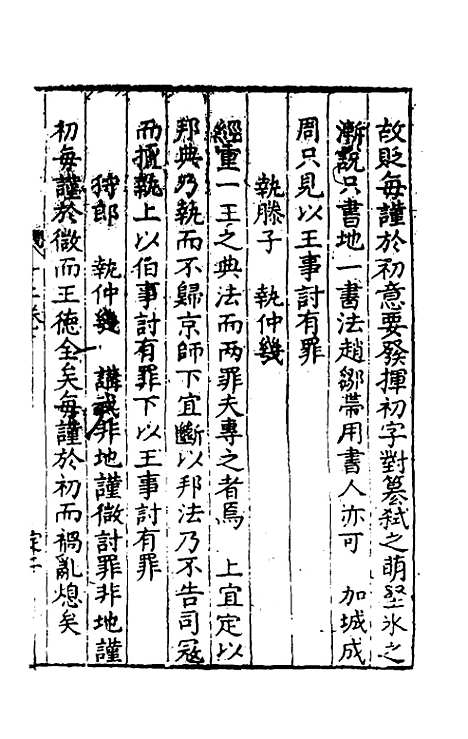 故貶每謹於初意要發揮初字對篡弒之萌堅氷之
漸說只書地一書法趙鄒帶用書人亦可　加城成
周只見以王事討有罪
執滕子　執仲幾
經重一王之典法而两罪夫專之者焉　上宜定以
邦典乃執而不歸京師下宜斷以邦法乃不告司冦
而擅執上以伯事討有罪下以王事討有罪
狩郎　執仲幾　講武非地謹微討罪非地謹
初每謹於微而王德全矣每謹於初而禍亂熄矣